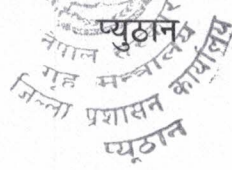 प्युठान
नेपाल सरकार
गृह मन्त्रालय
जिल्ला प्रशासन कार्यालय
प्यूठान